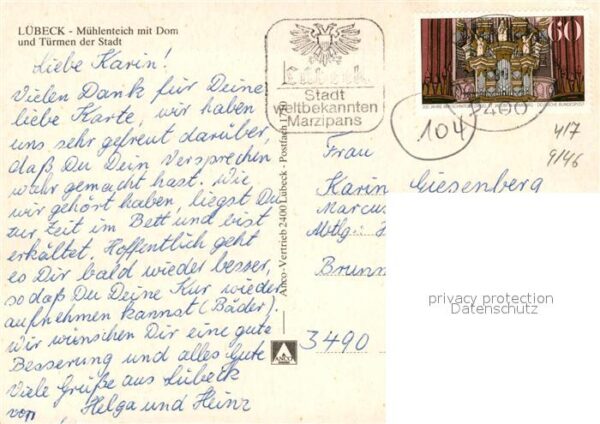 LÜBECK - Mühlenteich mit Dom
und Türmen der Stadt
Liebe Karin!
Vielen Dank für Deine
liebe Karte, wir haben
uns sehr gefreut darüber,
daß Du Dein Versprechen
wahr gemacht hast. Wie
wir gehört haben, liegst Du
zur Zeit im Bett und bist
erkältet. Hoffentlich geht
es Dir bald wieder besser,
so daß Du Deine Kur wieder
aufnehmen kannst (Bäder).
Wir wünschen Dir eine gute
Besserung und alles Gute
Viele Grüße aus Lübeck
von Helga und Heinz
Anco-Vertrieb 2400 Lübeck - Postfach 1750
ANCO
Lübeck
Stadt
weltbekannten
Marzipans
60
DEUTSCHE BUNDESPOST
2400
104
4/7
9/46
Frau
Karin Giesenberg
Marcus
Abtlg:
Brunn
3490
privacy protection
Datenschutz